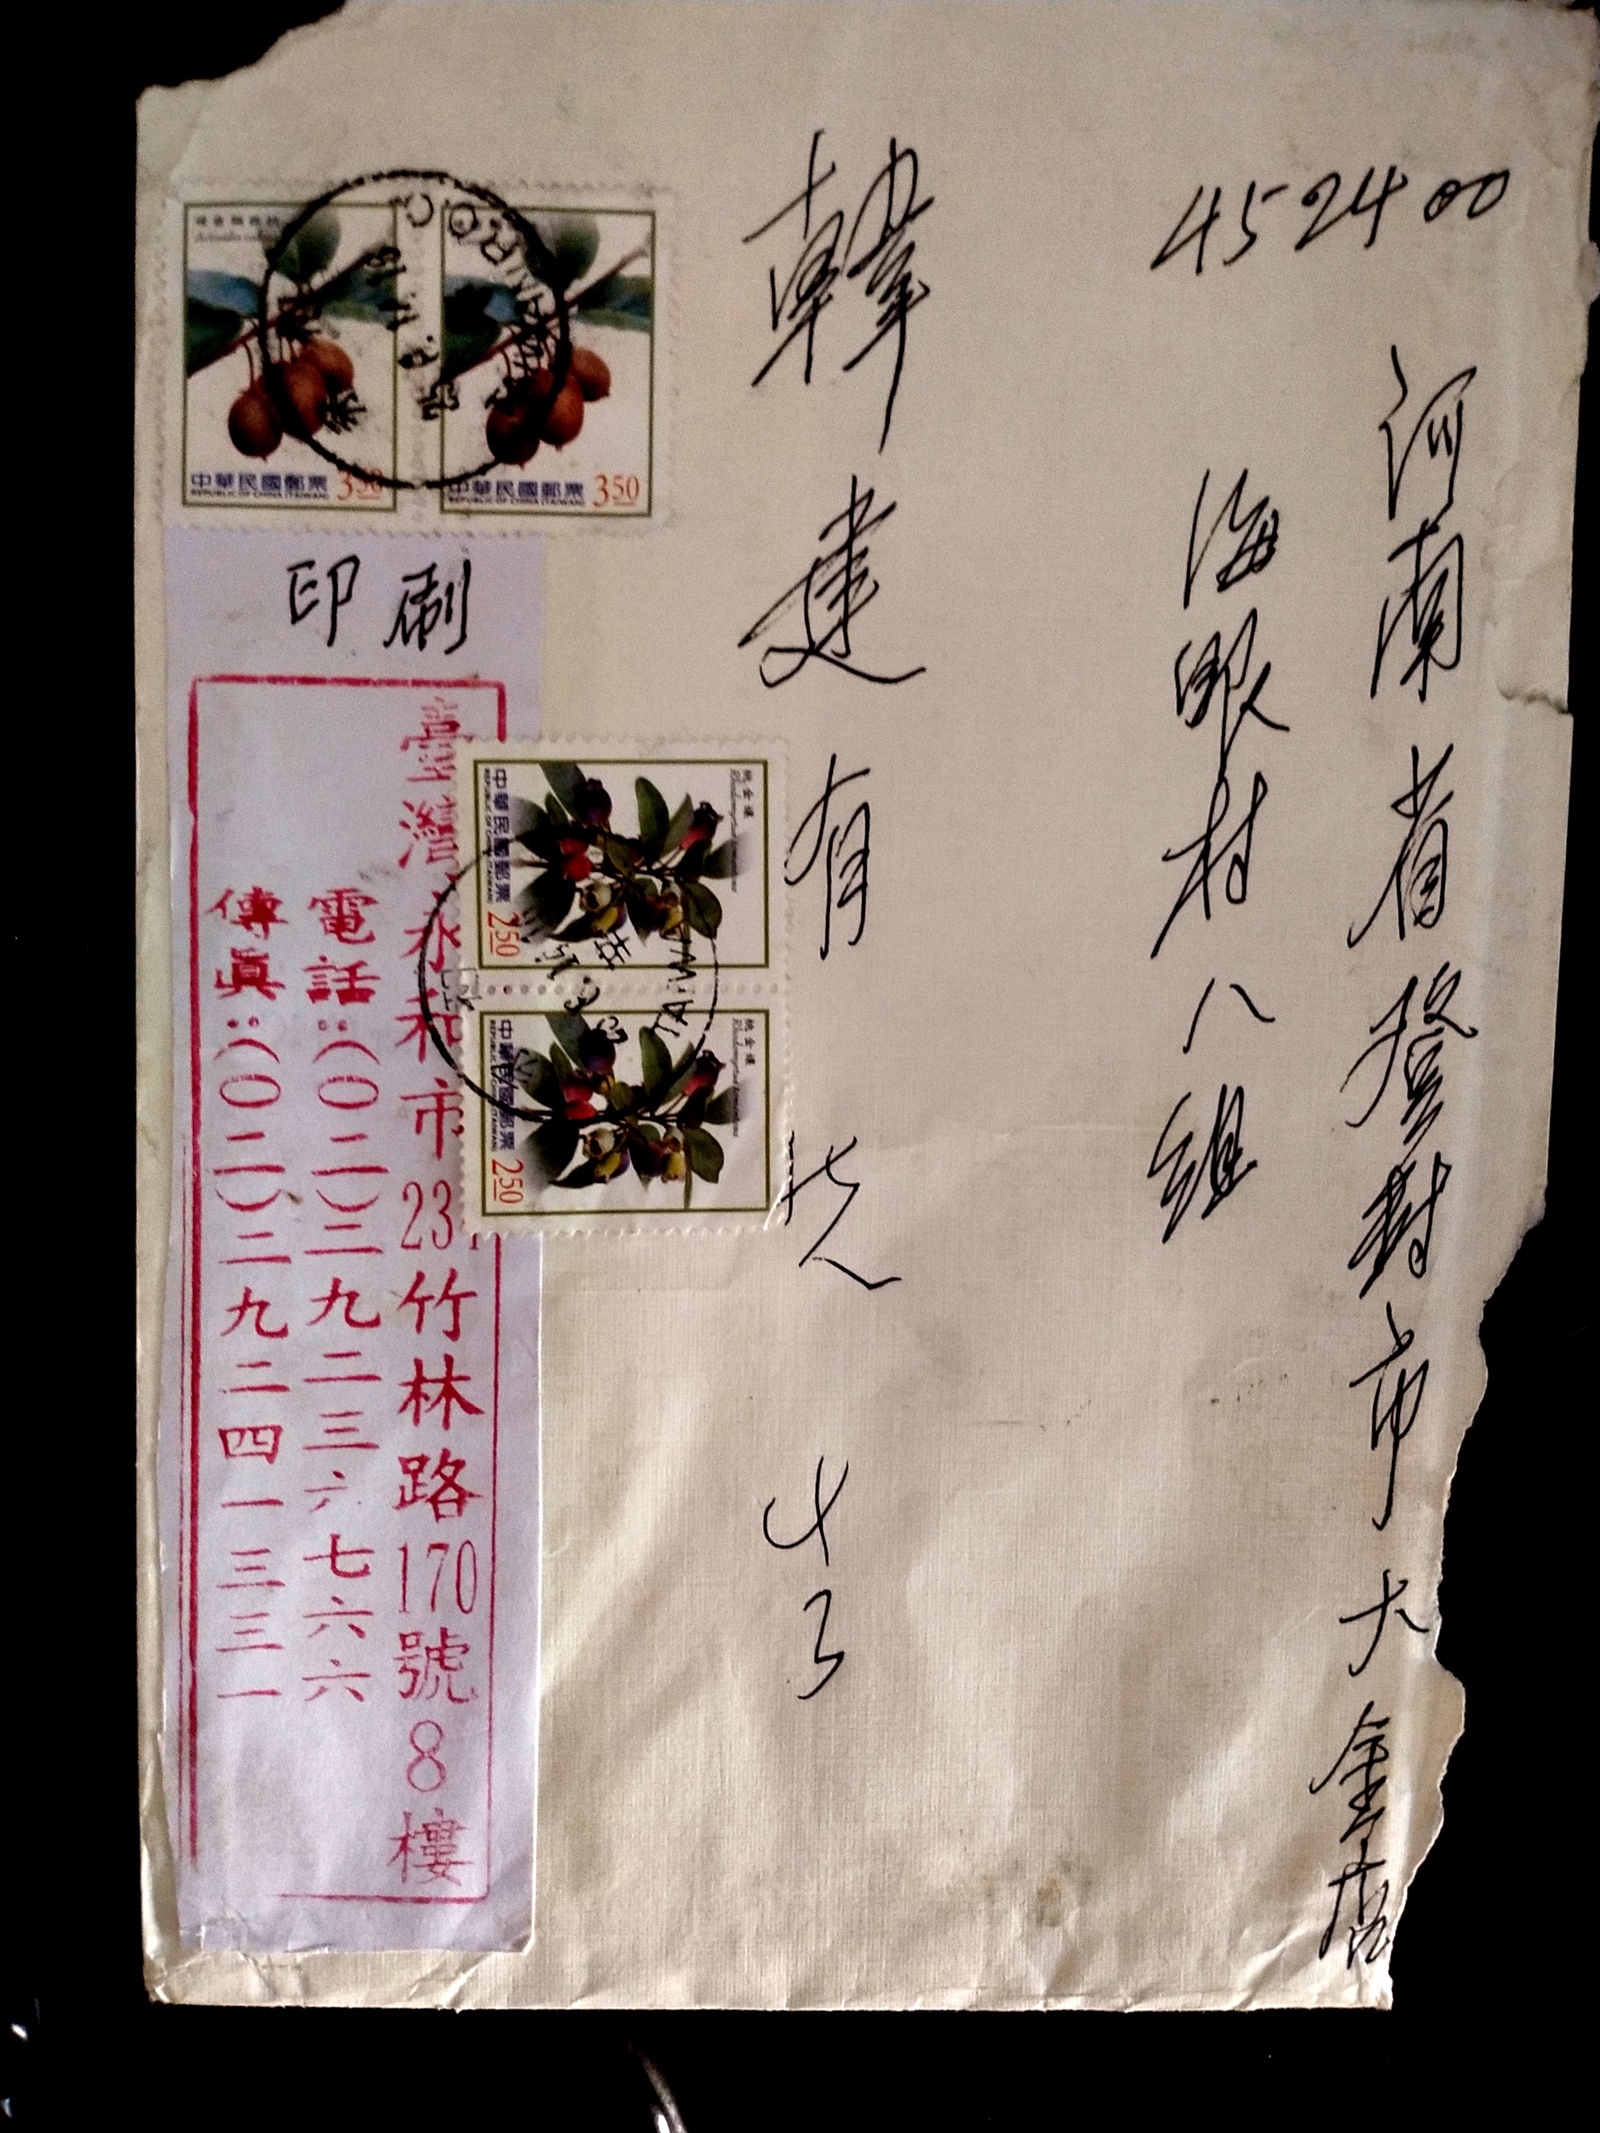 452400
河南省登封市大金店
海眼村八組
韓建有先生
中華民國郵票
REPUBLIC OF CHINA (TAIWAN)
350
中華民國郵票
REPUBLIC OF CHINA (TAIWAN)
350
印刷
桃金孃
中華民國郵票
REPUBLIC OF CHINA (TAIWAN)
250
桃金孃
中華民國郵票
REPUBLIC OF CHINA (TAIWAN)
250
TAIWAN R.O.C
臺灣永和市234竹林路170號8樓
電話:(〇二)二九二三六七六六
傳真:(〇二)二九二四一三三一